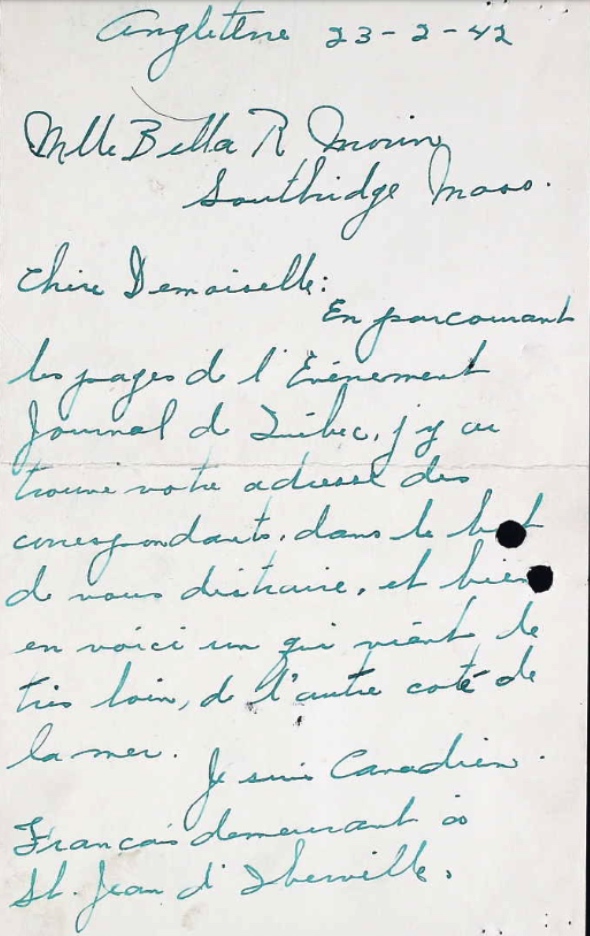 Angleterre 23-2-42
Mlle Bella R Morin
Southbridge Mass.
Chère Demoiselle:
En parcourant
les pages de l'Evénement
Journal de Québec, j'y ai
trouvé votre adresse des
correspondants, dans le but
de vous distraire, et bien
en voici un qui vient de
très loin, de l'autre coté de
la mer.
Je suis Canadien
Francais demeurant à
St. Jean d'Iberville.